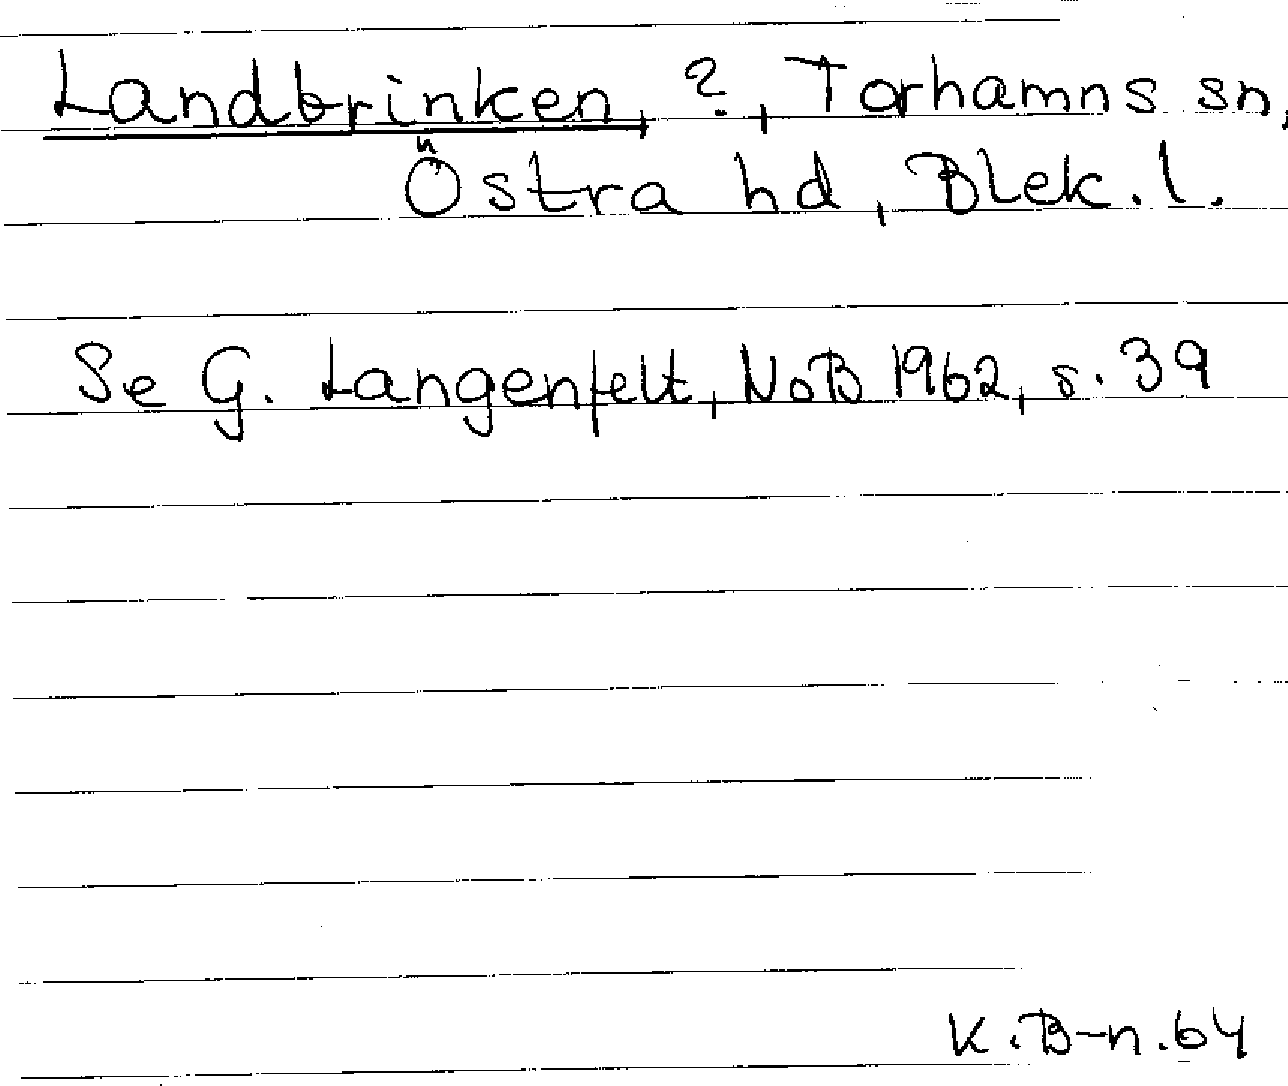 Landbrinken, ?, Torhamns sn,
Östra hd, Blek. l.
Se G. Langenfelt, NoB 1962, s. 39
K.B-n.64